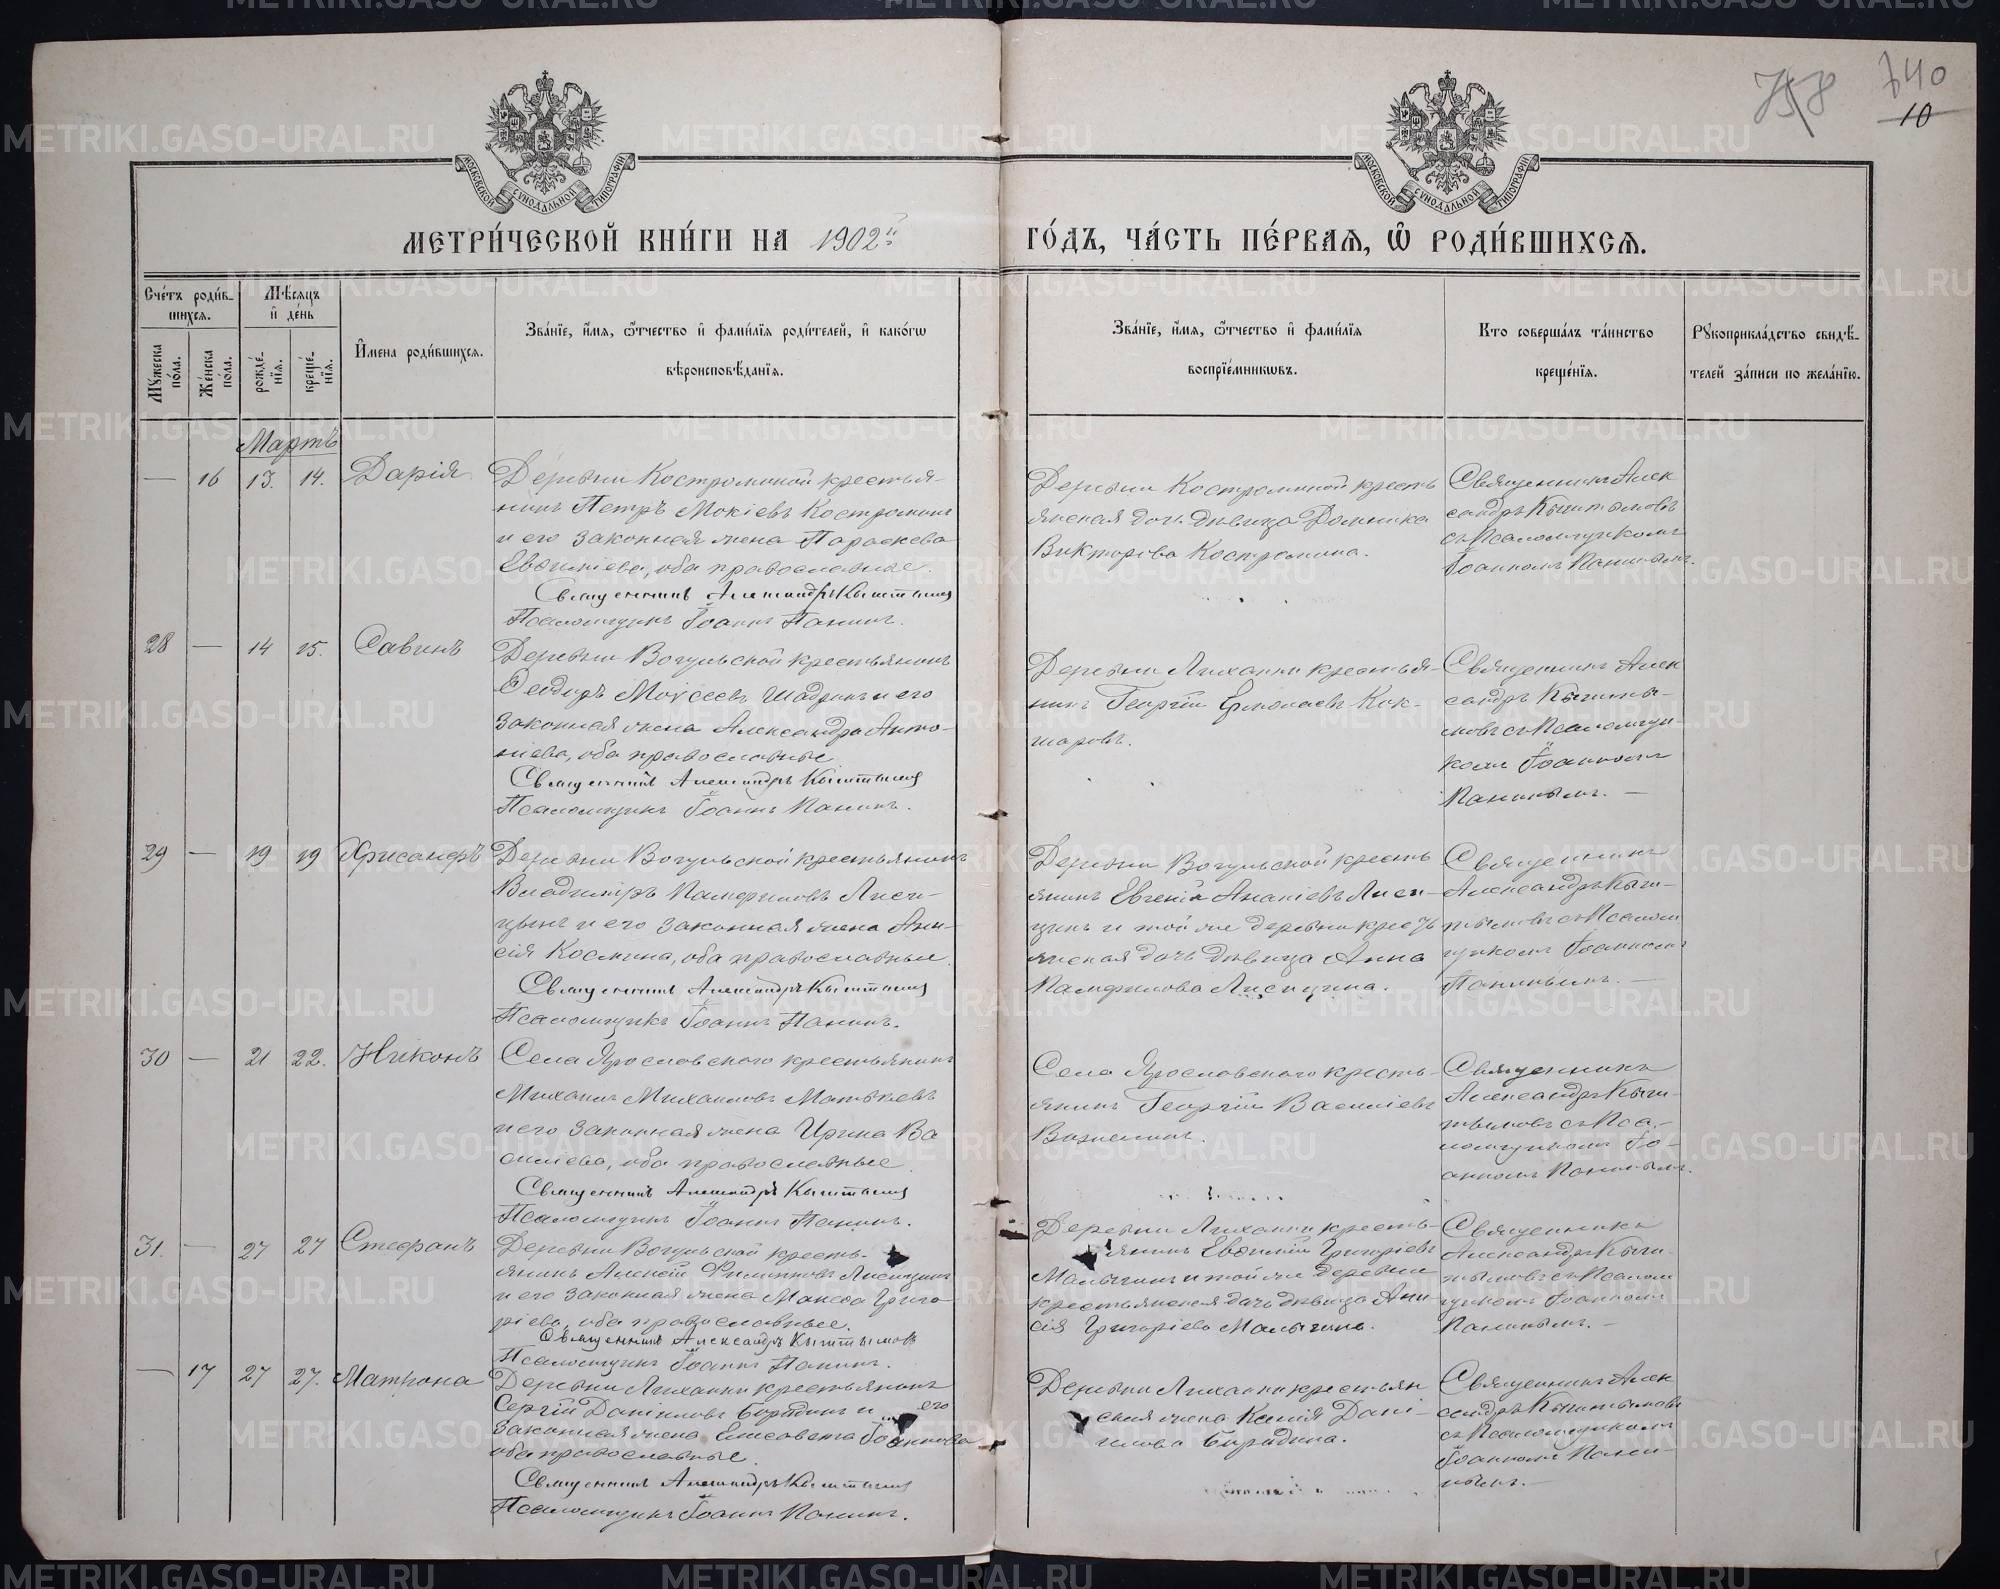 758
740
10
МОСКОВСКОЙ СѴНОДАЛЬНОЙ ТИПОГРАФІИ
МОСКОВСКОЙ СѴНОДАЛЬНОЙ ТИПОГРАФІИ
МЕТРИ́ЧЕСКОЙ КНИ́ГИ НА 1902й
ГО́ДЪ, ЧА́СТЬ ПЕ́РВАЯ, Ѡ РОДИ́ВШИХСЯ.
Сче́тъ роди́в-
шихся.
Мѣ́сяцъ
и де́нь
Мꙋжеска по́ла.
Же́нска по́ла.
рожде́нїя.
креще́нїя.
И҆мена роди́вшихся.
Зва́нїе, и҆́мя, ѻ҆́тчество и҆ фами́лїя роди́телей, и҆ како́гѡ
вѣроисповѣ́данїя.
Зва́нїе, и҆́мя, ѻ҆́тчество и҆ фами́лїя
воспрїе́мникѡвъ.
Кто соверша́лъ та́инство
креще́нїя.
Рꙋкоприкла́дство свидѣ́-
телей за́писи по жела́нїю.
Мартъ
— 16 13. 14. Дарія
Деревни Костроминой крестья-
нинъ Петръ Мокіевъ Костроминъ
и его законная жена Параскева
Евфиміева, оба православные.
Священникъ Александръ Кыштымовъ
Псаломщикъ Іоаннъ Панинъ.
Деревни Костроминой кресть
янская дочь девица Домника
Викторова Костромина.
Священникъ Алек
сандръ Кыштымовъ
съ Псаломщикомъ
Іоанномъ Панинымъ.
28 — 14 15. Савинъ
Деревни Вогульской крестьянинъ
Феодоръ Моѵсеевъ Шадринъ и его
законная жена Александра Анто-
ніева, оба православные
Священникъ Александръ Кыштымовъ
Псаломщикъ Іоаннъ Панинъ.
Деревни Лиханки крестья-
нинъ Георгій Ермолаевъ Кок-
шаровъ.
Священникъ Алек
сандръ Кышты-
мовъ съ Псаломщи-
комъ Іоанномъ
Панинымъ. —
29 — 19 19 Хрисанфъ
Деревни Вогульской крестьянинъ
Владиміръ Памфиловъ Лиси-
цынъ и его законная жена Ани-
сія Космина, оба православные.
Священникъ Александръ Кыштымовъ
Псаломщикъ Іоаннъ Панинъ.
Деревни Вогульской кресть
янинъ Евгеній Ананіевъ Лиси-
цинъ и той же деревни кресть
янская дочь девица Анна
Памфилова Лисицина.
Священникъ
Александръ Кыш-
тымовъ съ Псалом
щикомъ Іоанномъ
Панинымъ. —
30 — 21 22. Никонъ
Села Ярославского крестьянинъ
Михаилъ Михаиловъ Матвѣевъ
и его законная жена Ирина Ва
силіева, оба православные.
Священникъ Александръ Кыштымовъ
Псаломщикъ Іоаннъ Панинъ.
Села Ярославского кресть-
янинъ Георгій Василіевъ
Священникъ
Александръ Кыш-
тымовъ съ Пса-
ломщикомъ Іо-
анномъ Панинымъ.
31. — 27 27 Стефанъ
Деревни Вогульской кресть-
янинъ Алексій Филипповъ Лисицинъ
и его законная жена Марѳа Григо-
ріева, оба православные.
Священникъ Александръ Кыштымовъ
Псаломщикъ Іоаннъ Панинъ.
Деревни Лиханки кресть-
янинъ Евфимій Григоріевъ
Малыгинъ и той же деревни
крестьянская дочь девица Ани-
сія Григоріева Малыгина.
Священникъ
Александръ Кыш-
тымовъ съ Псалом
щикомъ Іоанномъ
Панинымъ. —
— 17 27 27. Матрона
Деревни Лиханки крестьянинъ
Сергій Даніиловъ и его
законная жена Елисавета Іоаннова
оба православные.
Священникъ Александръ Кыштымовъ
Псаломщикъ Іоаннъ Панинъ.
Деревни Лиханки крестьян
ская жена Ксенія Дані-
илова
Священникъ Алек
сандръ Кыштымовъ
съ Псаломщикомъ
Іоанномъ Пани-
нымъ. —